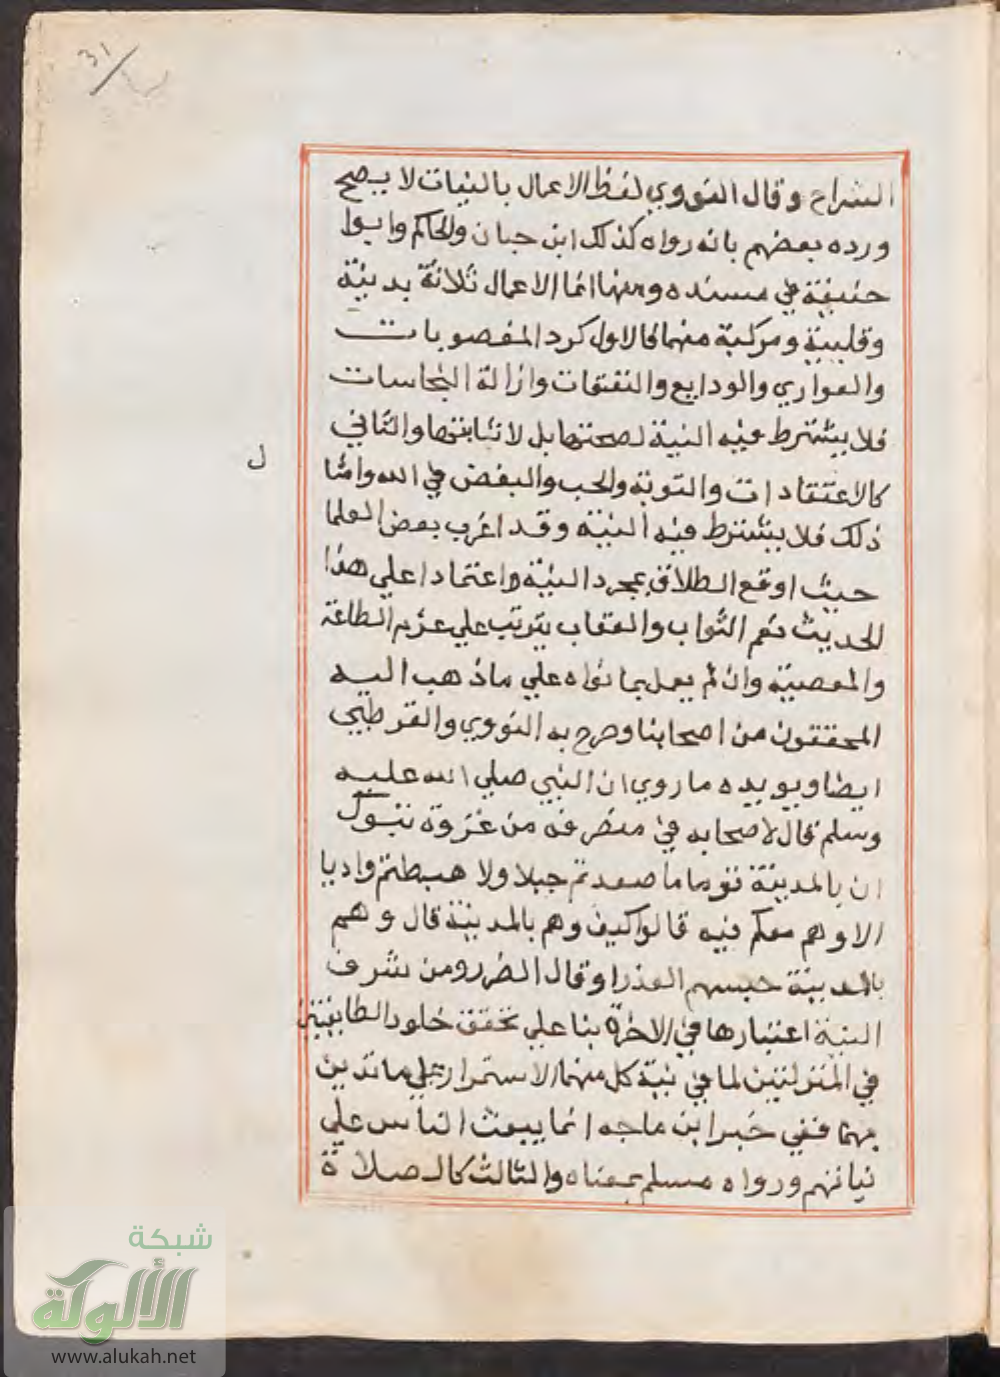 31
الشراح وقال النووي لفظ الاعمال بالنيات لا يصح
ورده بعضهم بانه رواه كذلك ابن حبان والحاكم وابوا
حنيفة في مسنده ومنها انما الاعمال ثلاثة بدنية
وقلبية ومركبة منهما فالاول كرد المغصوبات
والعواري والودايع والنفقات وازالة النجاسات
فلا يشترط فيه النية لصحتها بل لاثابتها والثاني
كالاعتقادات والتوبة والحب والبغض في الله وامثا
ل
ذلك فلا يشترط فيه النية وقد اغرب بعض العلما
حيث اوقع الطلاق بمجرد النية واعتمادا علي هذا
الحديث نعم الثواب والعقاب يترتب علي عزم الطاعة
والمعصية وان لم يعمل بما نواه علي ما ذهب اليه
المحققون من اصحابنا وصرح به النووي والقرطبي
ايضا ويويده ما روي ان النبي صلي الله عليه
وسلم قال لاصحابه في منصرفه من غزوة تبوك
ان بالمدينة قوما ما صعدتم جبلا ولا هبطتم واديا
الا وهم معكم فيه قالوا كيف وهم بالمدينة قال وهم
بالمدينة حبسهم العذر او قال الضرر ومن شرف
النية اعتبارها في الاخرة بنا علي تحقق خلود الطايفتين
في المنزلتين لما في نية كل منهما الاستمرار علي ما تدين
بهما ففي خبر ابن ماجه انما يبعث الناس علي
نياتهم ورواه مسلم بمعناه والثالث كالصلاة
شبكة
الألوكة
www.alukah.net